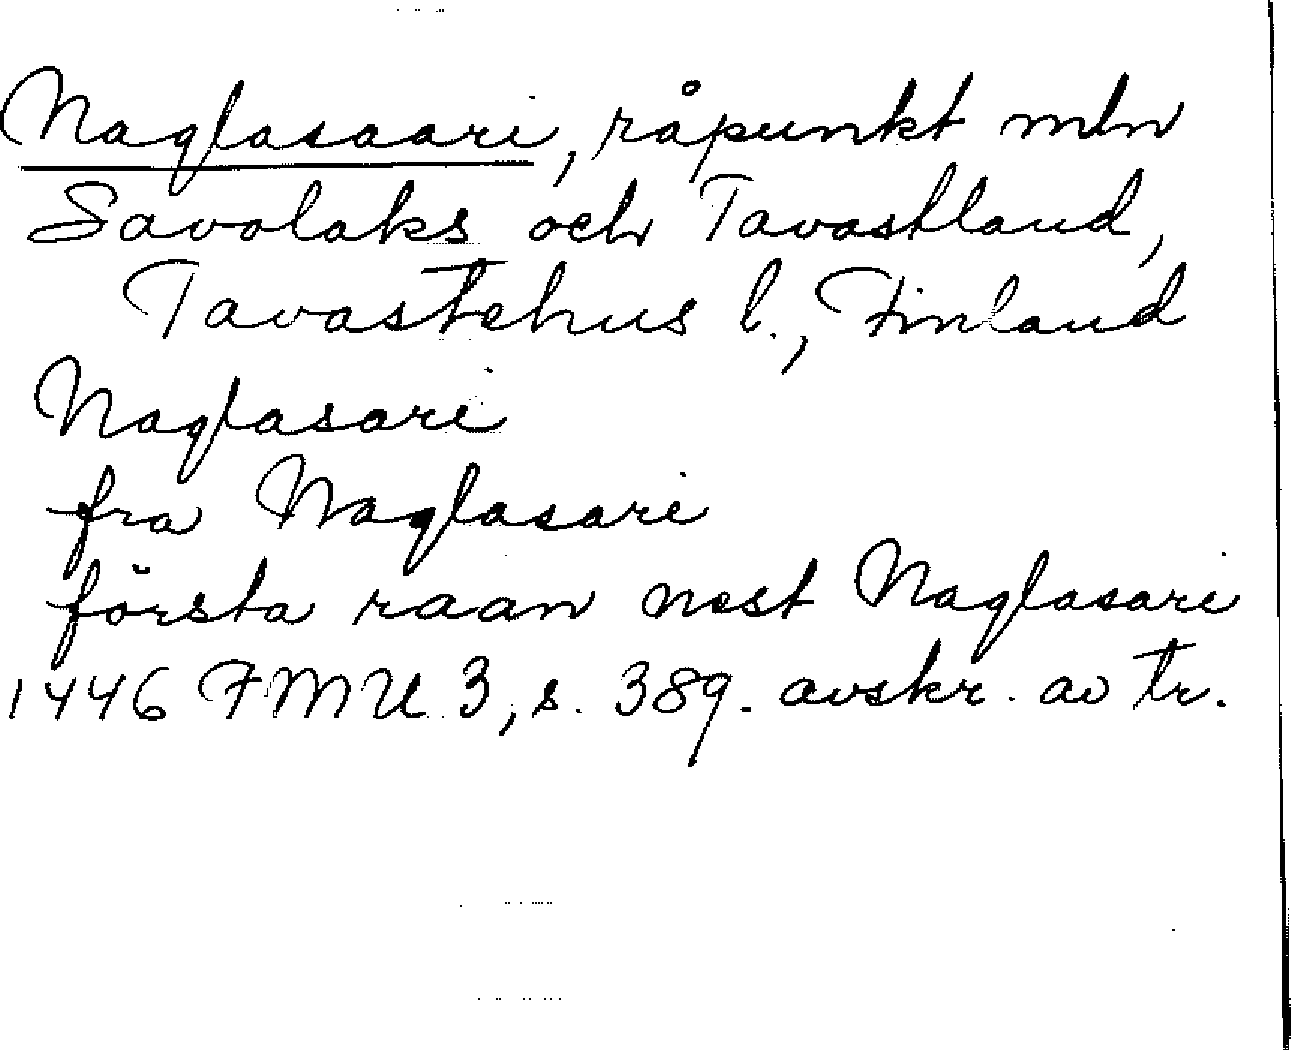 Naglasaari, råpunkt mln
Savolaks och Tavastland,
Tavastehus l., Finland
Naglasari
fra Naglasari
första raan nest Naglasari
1446 FMU 3, s. 389. avskr. av tr.